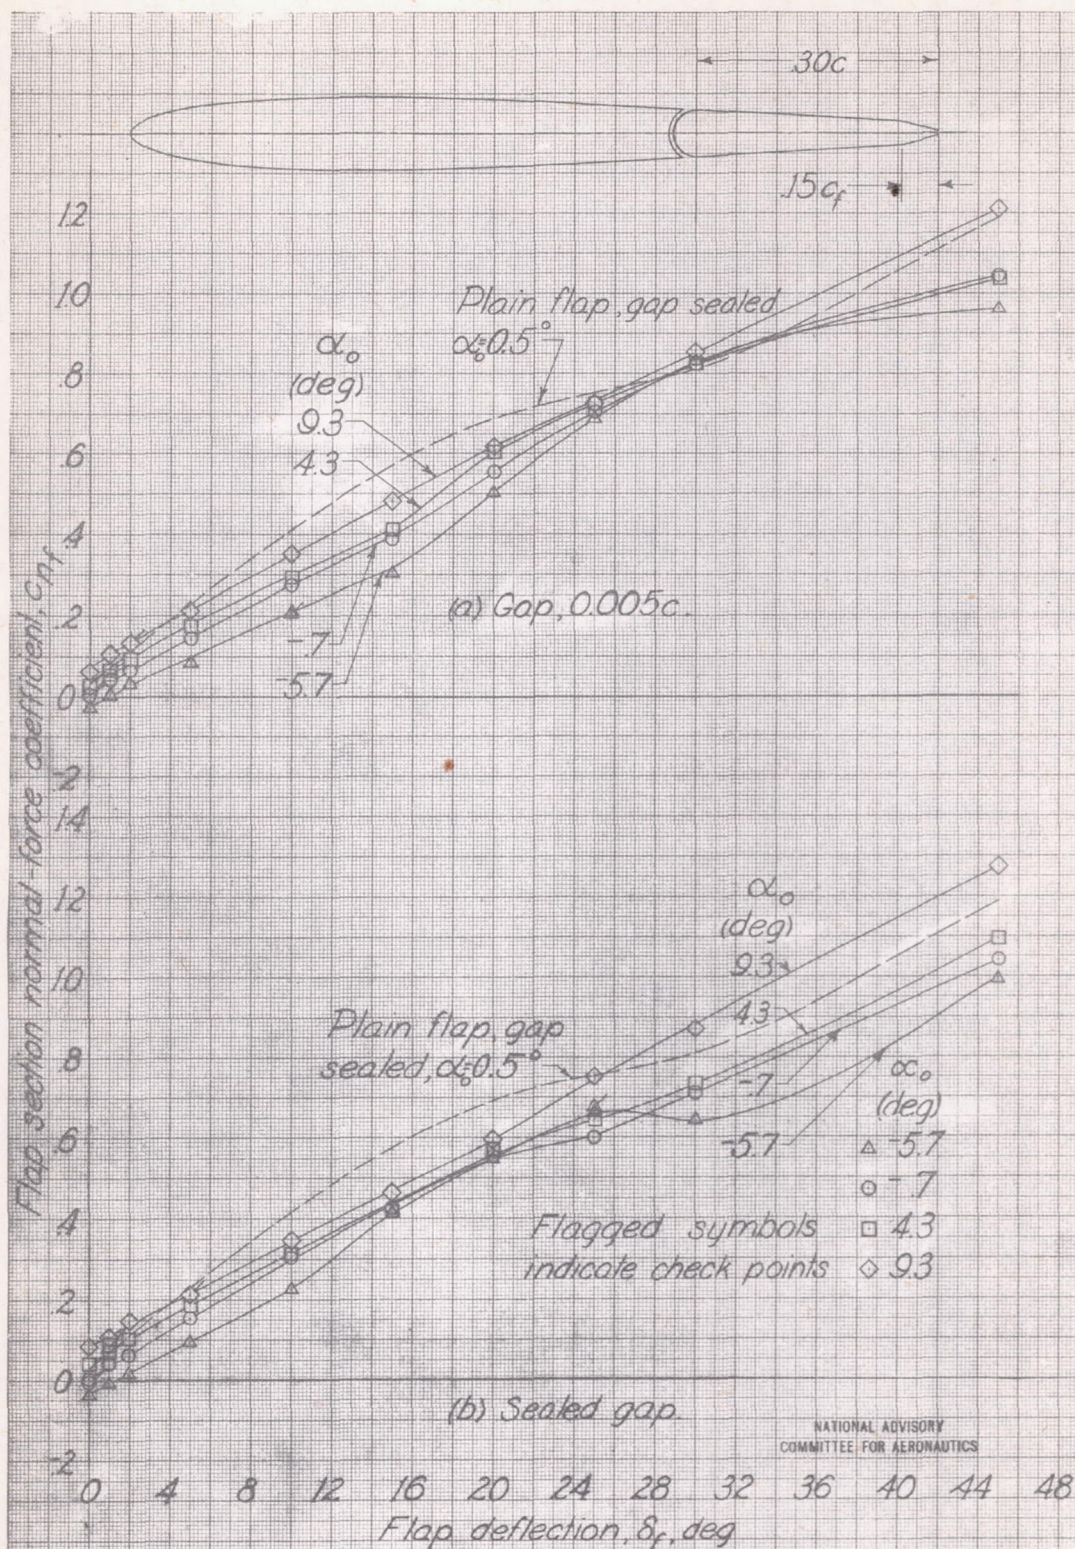 .30c
.15cf
1.2
1.0
.8
.6
.4
.2
0
-.2
Plain flap, gap sealed
α₀=0.5°
α₀
(deg)
9.3
4.3
-.7
-5.7
(a) Gap, 0.005c.
Flap section normal-force coefficient, cnf
1.4
1.2
1.0
.8
.6
.4
.2
0
-.2
α₀
(deg)
9.3
4.3
-.7
-5.7
Plain flap, gap
sealed, α₀=0.5°
α₀
(deg)
△ -5.7
○ -.7
□ 4.3
◇ 9.3
Flagged symbols
indicate check points
(b) Sealed gap.
NATIONAL ADVISORY
COMMITTEE FOR AERONAUTICS
0 4 8 12 16 20 24 28 32 36 40 44 48
Flap deflection, δf, deg